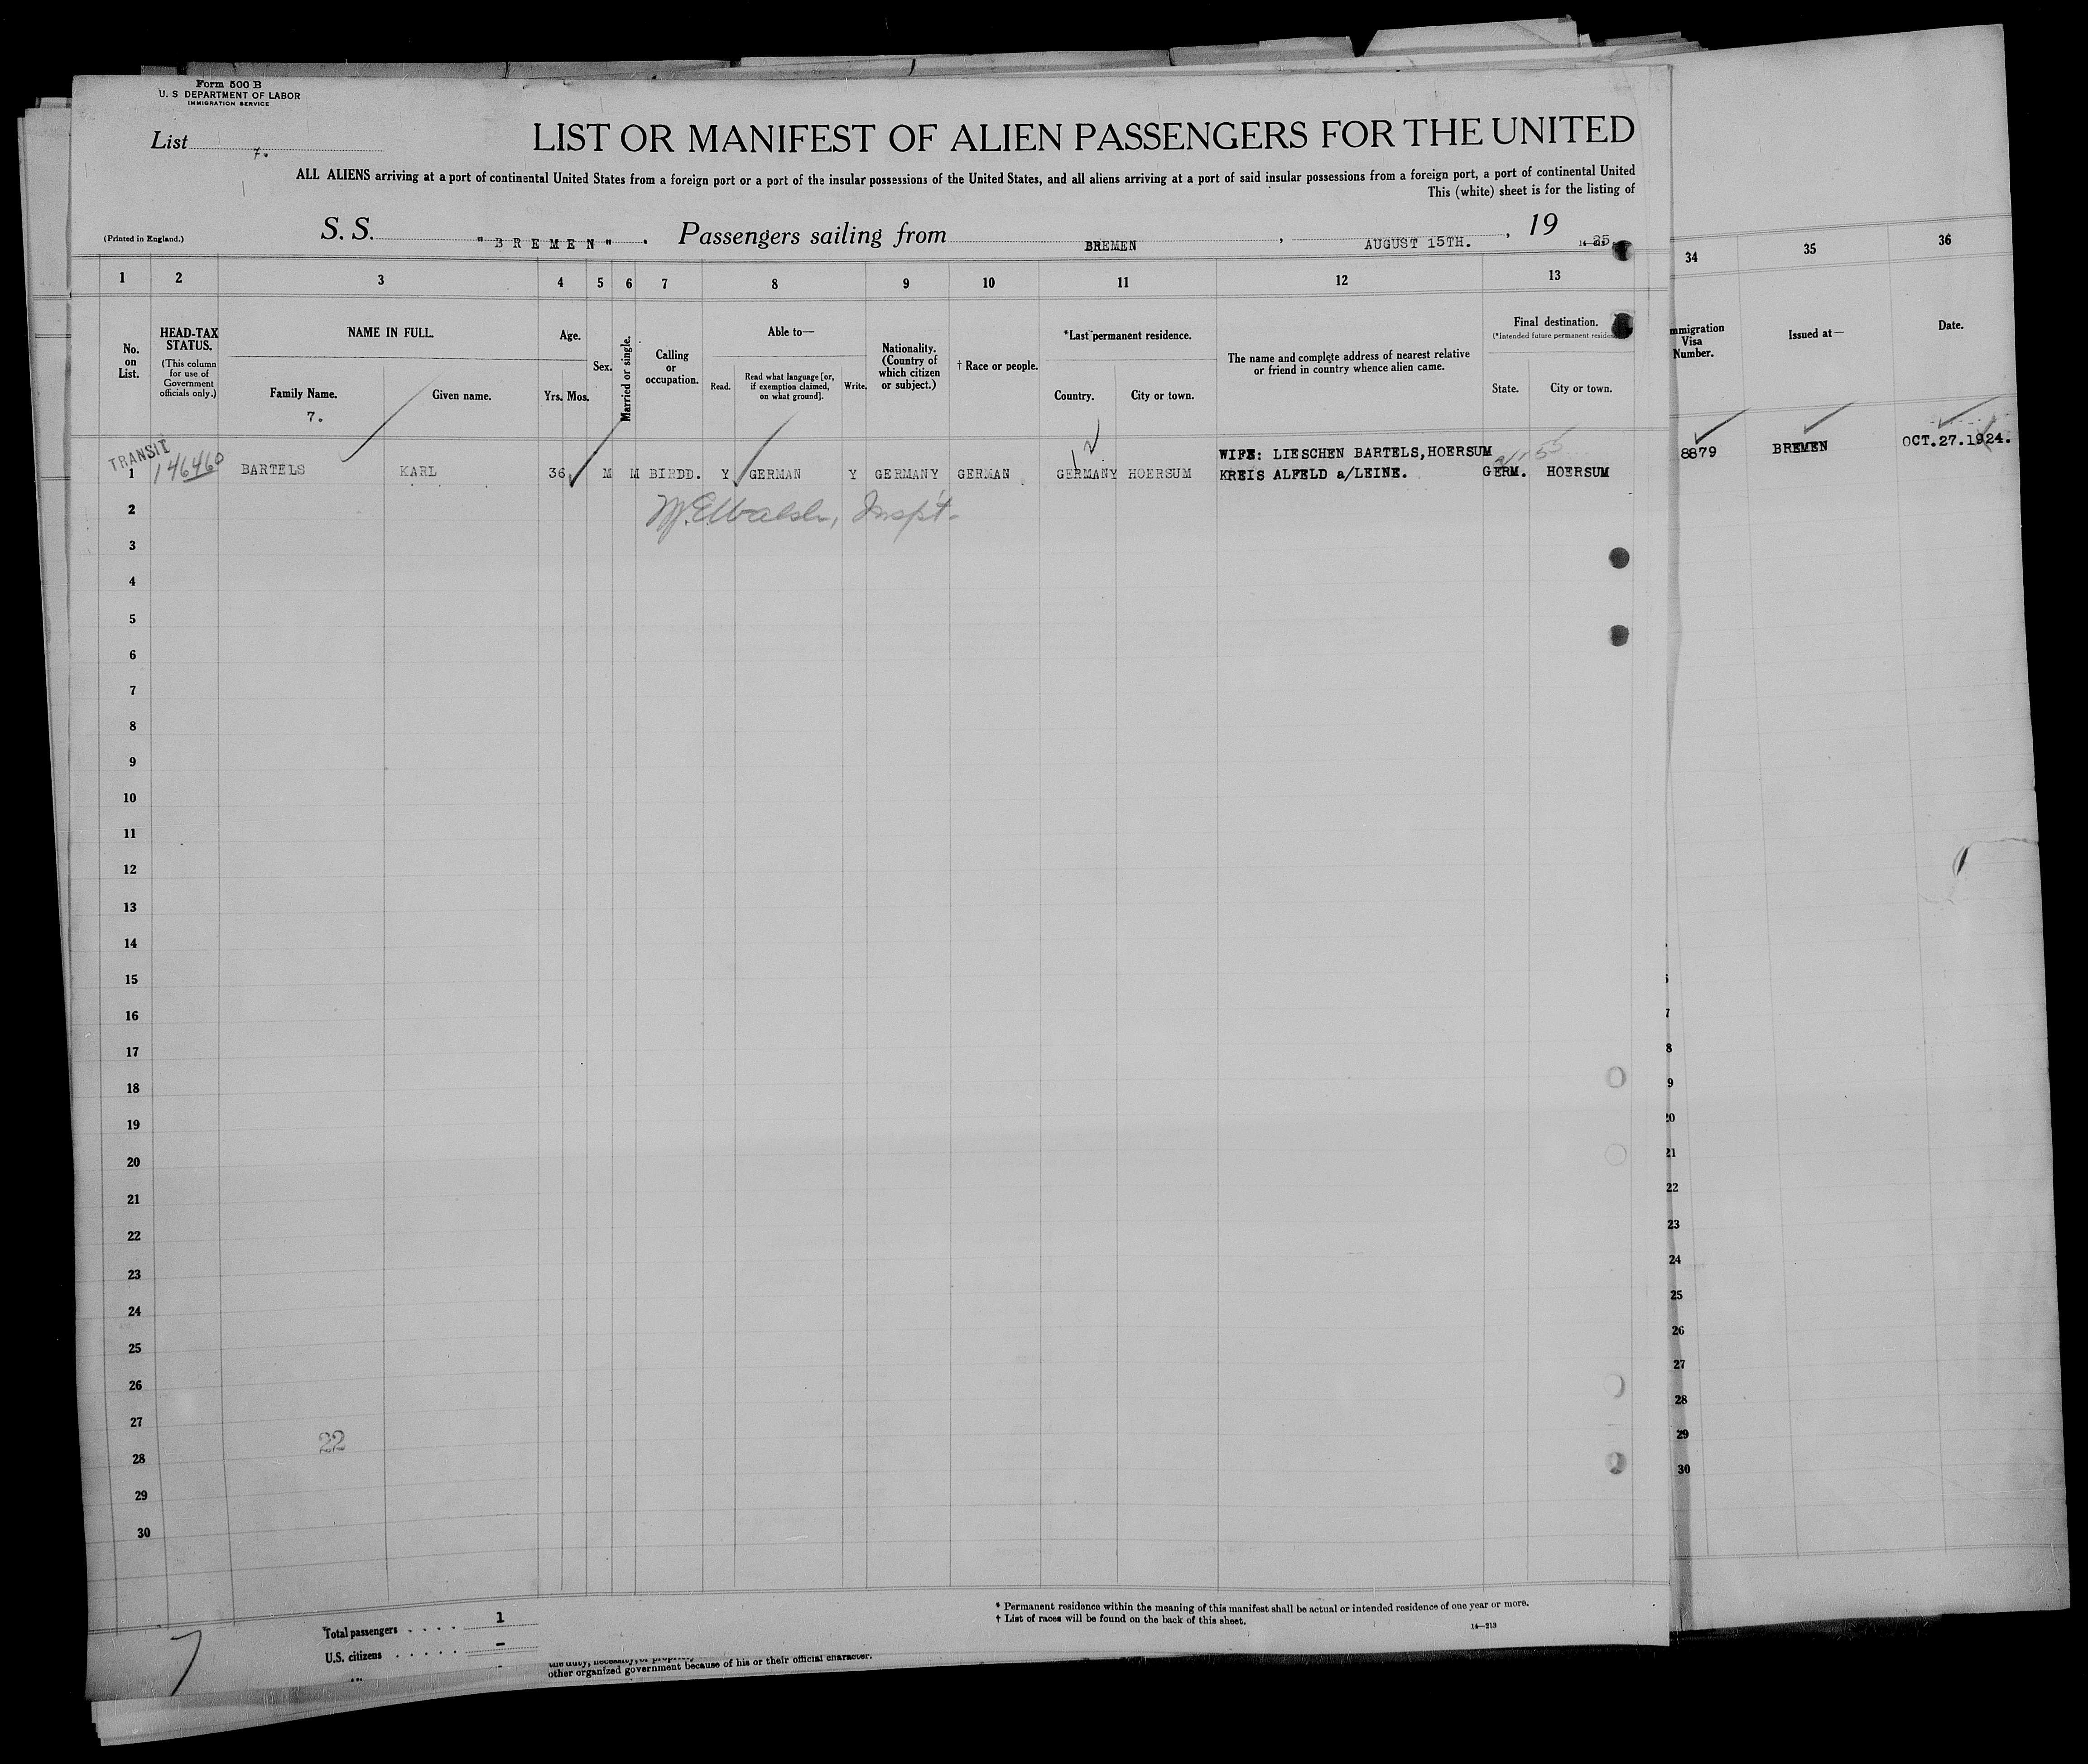 Form 500 B
U. S DEPARTMENT OF LABOR
IMMIGRATION SERVICE
List 7.
LIST OR MANIFEST OF ALIEN PASSENGERS FOR THE UNITED
ALL ALIENS arriving at a port of continental United States from a foreign port or a port of the insular possessions of the United States, and all aliens arriving at a port of said insular possessions from a foreign port, a port of continental United
This (white) sheet is for the listing of
(Printed in England.)
S. S. "BREMEN". Passengers sailing from BREMEN, AUGUST 15TH., 19 25
1 2 3 4 5 6 7 8 9 10 11 12 13 34 35 36
No. on List.
HEAD-TAX STATUS.
(This column for use of Government officials only.)
NAME IN FULL.
Family Name.
Given name.
7.
Age.
Yrs. Mos.
Sex.
Married or single.
Calling or occupation.
Able to—
Read.
Read what language [or, if exemption claimed, on what ground].
Write.
Nationality. (Country of which citizen or subject.)
† Race or people.
*Last permanent residence.
Country.
City or town.
The name and complete address of nearest relative or friend in country whence alien came.
Final destination.
(*Intended future permanent
State.
City or town.
mmigration Visa Number.
Issued at—
Date.
TRANSIT
WIFE: LIESCHEN BARTELS,HOERSUM
1 146460 BARTELS KARL 36 M M BIRDD. Y GERMAN Y GERMANY GERMAN GERMANY HOERSUM KREIS ALFELD a/LEINE. GERM. HOERSUM
8879 BREMEN OCT.27.1924.
2
3
4
5
6
7
8
9
10
11
12
13
14
15
16
17
18
19
20
21
22
23
24
25
26
27
28
29
30
8
9
20
21
22
23
24
25
26
27
28
29
30
22
Total passengers . . . . 1
U.S. citizens . . . . . –
* Permanent residence within the meaning of this manifest shall be actual or intended residence of one year or more.
† List of races will be found on the back of this sheet.
14—213
7
other organized government because of his or their official character.